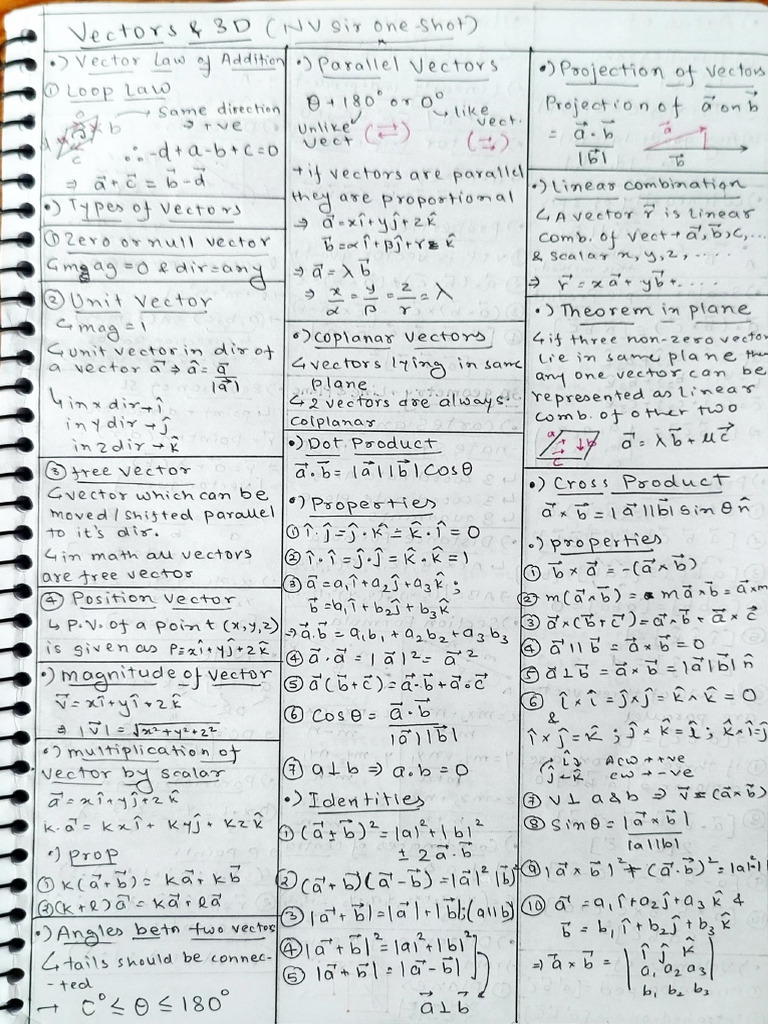 Vectors & 3D (NV Sir one-shot)
•) Vector Law of Addition
① Loop Law
a
d b
c
→ Same direction
⇒ +ve
∴ -d+a-b+c=0
⇒ a⃗+c⃗ = b⃗-d⃗
•) Types of Vectors
① Zero or null vector
↳ mag=0 & dir=any
② Unit Vector
↳ mag=1
↳ unit vector in dir of
a vector a⃗ ⇒ â = a⃗
|a⃗|
↳ in x dir → î
in y dir → ĵ
in z dir → k̂
③ free vector
↳ vector which can be
moved/shifted parallel
to it's dir.
↳ in math all vectors
are free vector
④ Position Vector
↳ P.V. of a point (x,y,z)
is given as P=xî+yĵ+zk̂
•) magnitude of vector
v⃗ = xî+yî+zk̂
⇒ |v⃗| = √x²+y²+z²
•) multiplication of
vector by scalar
a⃗ = xî+yĵ+zk̂
K.a⃗ = Kxî+Kyĵ+Kzk̂
•) prop
① K(a⃗+b⃗) = Ka⃗+Kb⃗
②(K+l)a⃗ = Ka⃗+la⃗
•) Angles betn two vectors
↳ tails should be connec-
-ted
→ 0° ≤ θ ≤ 180°
•) Parallel Vectors
θ → 180° or 0°
Unlike vect (⇄)
like vect. (⇉)
→ if vectors are parallel
they are proportional
⇒ a⃗=xî+yĵ+zk̂
b⃗=αî+βĵ+rk̂
⇒ a⃗ = λb⃗
⇒ x/α = y/β = z/r = λ
•) Coplanar Vectors
↳ vectors lying in same
plane
↳ 2 vectors are always
Colplanar
•) Dot Product
a⃗.b⃗ = |a⃗||b⃗| Cosθ
•) Properties
① î.ĵ=ĵ.k̂=k̂.î=0
② î.î=ĵ.ĵ=k̂.k̂=1
③ a⃗=a₁î+a₂ĵ+a₃k̂;
b⃗=b₁î+b₂ĵ+b₃k̂
⇒ a⃗.b⃗=a₁b₁+a₂b₂+a₃b₃
④ a⃗.a⃗ = |a⃗|² = a⃗²
⑤ a⃗(b⃗+c⃗)=a⃗.b⃗+a⃗.c⃗
⑥ Cosθ = a⃗.b⃗
|a⃗||b⃗|
⑦ a⊥b ⇒ a.b=0
•) Identities
①(a⃗±b⃗)²=|a|²+|b|²
± 2a⃗.b⃗
②(a⃗+b⃗)(a⃗-b⃗)=|a⃗|²-|b⃗|²
③ |a⃗+b⃗|=|a⃗|+|b⃗|;(a||b)
④ |a⃗+b⃗|²=|a|²+|b|²
⑤ |a⃗+b⃗|=|a⃗-b⃗|
a⃗⊥b⃗
•) Projection of vectors
Projection of a⃗ on b⃗
= a⃗.b⃗
|b⃗|
a⃗
b⃗
•) Linear combination
↳ A vector r⃗ is linear
comb. of vect → a⃗,b⃗,c,...
& scalar x,y,z,....
⇒ r⃗ = xa⃗+yb⃗+....
•) Theorem in plane
↳ if three non-zero vector
lie in same plane then
any one vector can be
represented as linear
comb. of other two
a b c
a⃗ = λb⃗+μc⃗
•) Cross Product
a⃗×b⃗=|a⃗||b⃗| sinθ n̂
•) properties
① b⃗×a⃗=-(a⃗×b⃗)
② m(a⃗×b⃗)= ma⃗×b⃗=a⃗×m
③ a⃗×(b⃗+c⃗)=a⃗×b⃗+a⃗×c⃗
④ a⃗||b⃗=a⃗×b⃗=0
⑤ a⃗⊥b⃗=a⃗×b⃗=|a⃗|b⃗|n̂
⑥ î×î=ĵ×ĵ=k̂×k̂=0
&
î×ĵ=k̂; ĵ×k̂=î; k̂×î=ĵ
î ĵ k̂
ACW → +ve
CW → -ve
⑦ v⊥a&b ⇒ v⃗=(a⃗×b⃗)
⑧ Sinθ=|a⃗×b⃗|
|a||b|
⑨ |a⃗×b⃗|²+(a⃗.b⃗)²=|a|²
⑩ a⃗=a₁î+a₂ĵ+a₃k̂ &
b⃗=b₁î+b₂ĵ+b₃k̂
⇒ a⃗×b⃗ = | î ĵ k̂ |
a₁ a₂ a₃
b₁ b₂ b₃